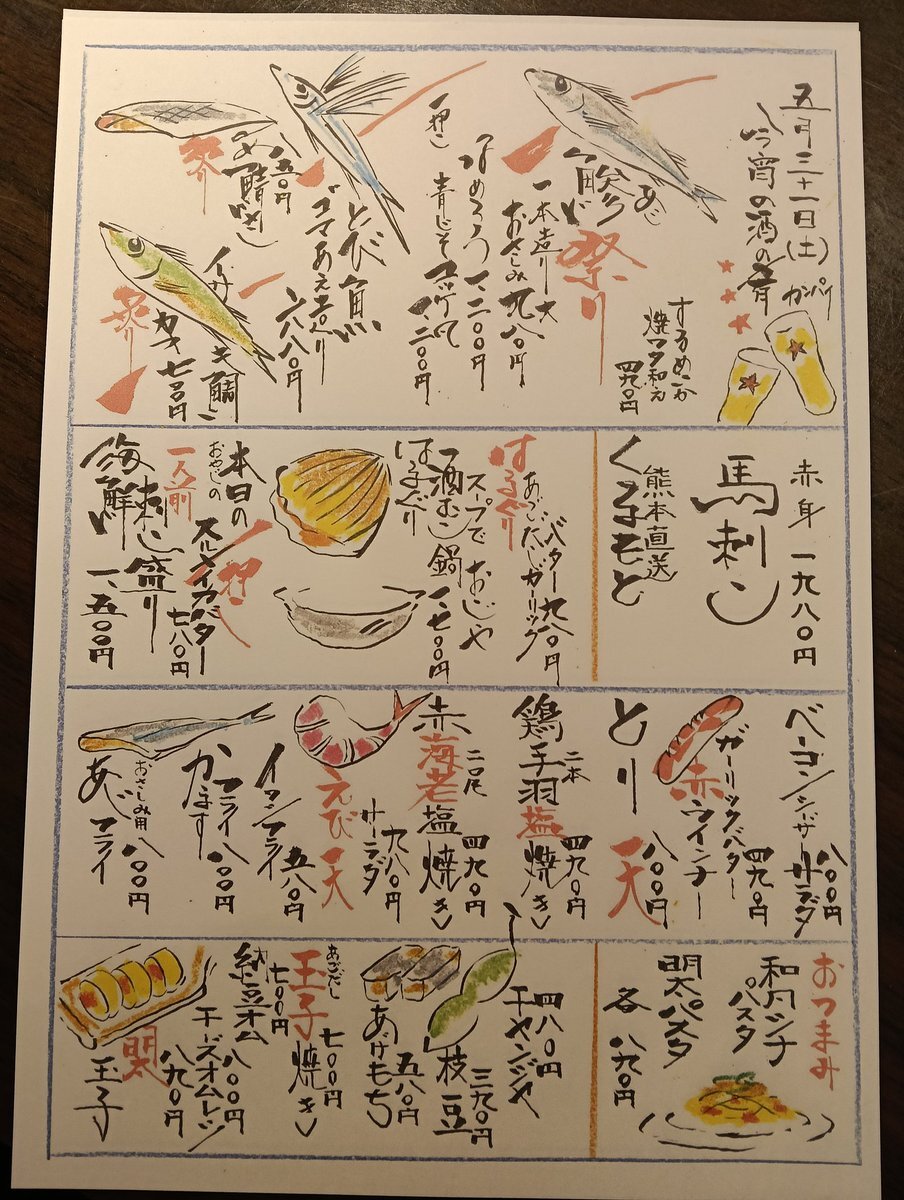 五月三十一日(土)
今宵の酒の肴
カンパイ
するめいか
焼ワタ和え
四九〇円
祭り
一本造り 大
おさしみ 九八〇円
なめろう 一、二〇〇円
一押し
青じそ
一、二〇〇円
とび魚
ゴマあえ造り
六八〇円
八五〇円
〆鯖
祭り
イサキ
七八〇円
祭り
赤身 一九八〇円
馬刺し
熊本直送
くまもと
はまぐり
あごだしガーリック
バター 九八〇円
スープでおじや
酒むし鍋 一、七〇〇円
はまぐり
一押し
スルメイカバター
七八〇円
本日の
おやじの
一人前
刺し盛り
海鮮
一、五〇〇円
ベーコンシーザーサラダ
八〇〇円
ガーリックバター
赤ウインナー
四九〇円
とり天
八〇〇円
鶏手羽塩焼き
二本
四九〇円
赤海老塩焼き
二尾
四九〇円
えび天
サラダ
九八〇円
イワシフライ
五八〇円
かます
フライ 八〇〇円
あじフライ
おさしみ用 八〇〇円
おつまみ
和風ツナ
パスタ
明太パスタ
各 八九〇円
チャンジャ
四八〇円
枝豆
三九〇円
あげもち
五八〇円
あごだし
玉子焼き
七〇〇円
納豆オム
八〇〇円
チーズオムレツ
八九〇円
明太
玉子
七〇〇円